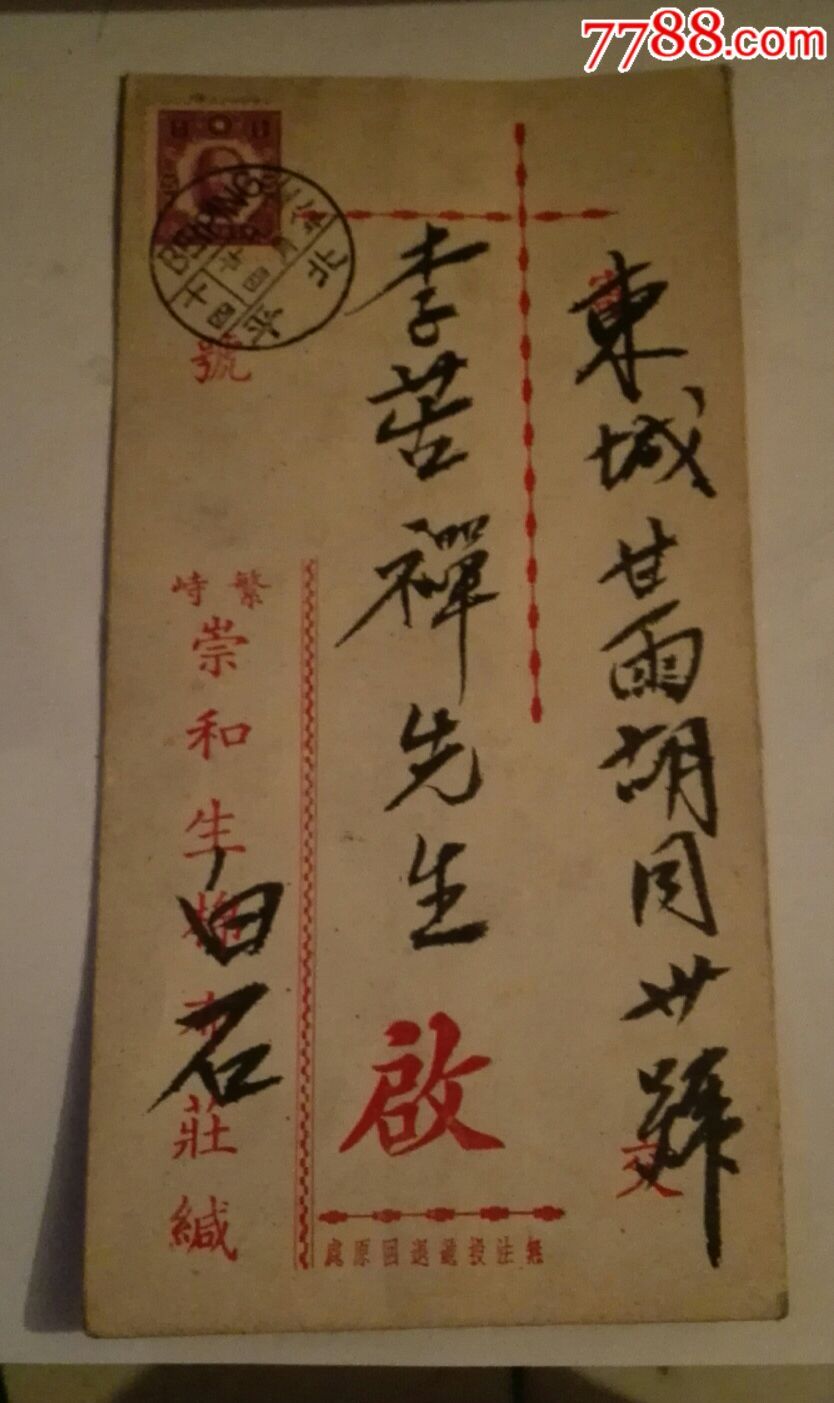 7788.com
東城甘雨胡同卅號
交
李苦禪先生
啟
無法投遞退回原處
號
繁峙
崇和生棉布莊緘
白石
BEIPING
北平